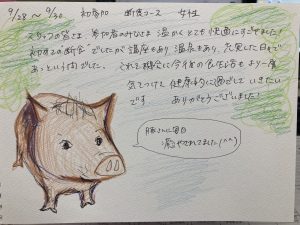 9/28 〜 9/30 初参加 断食コース 女性
スタッフの皆さま 参加者のみなさま 温かくとても快適にすごせました!
初めての断食でしたが講座もあり、温泉もあり、充実した日々で
あっという間でした。これを機会に今後の食生活をより一層
気をつけて健康的に過ごしていきたい
です ありがとうございました!
豚さんに毎日
癒やされてました(^^)